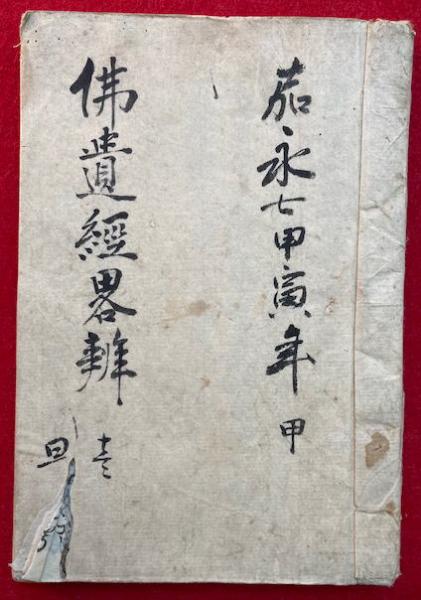 嘉永七甲寅年 甲
佛遺經畧辨
旦